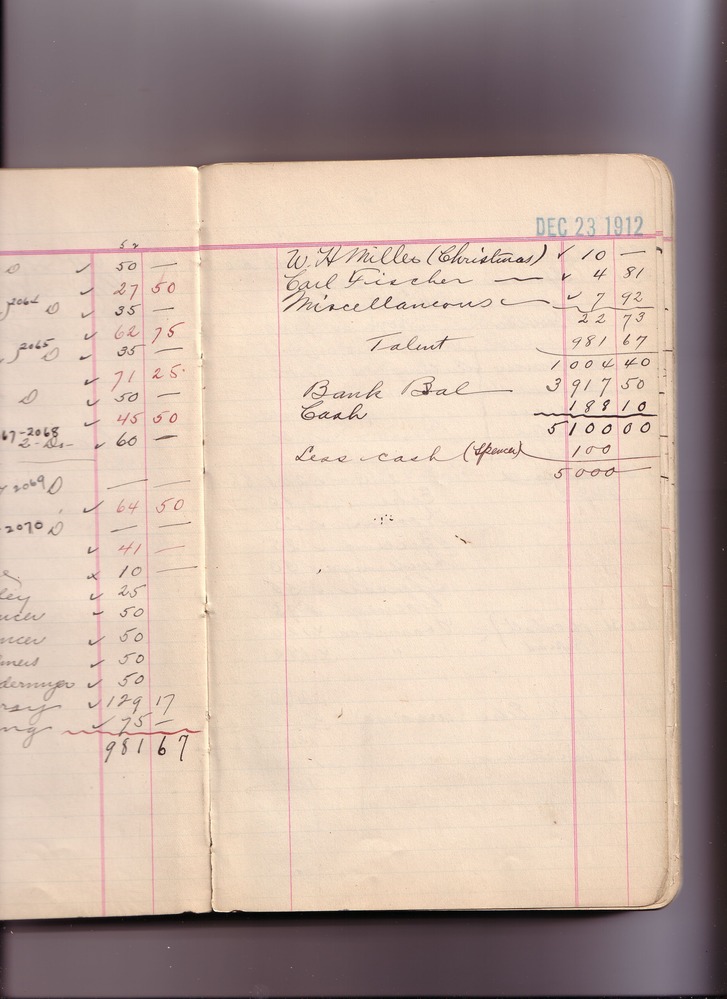 52
D ✓ 50 —
✓ 27 50
2064 D ✓ 35 —
✓ 62 75
2065 D ✓ 35 —
✓ 71 25
D ✓ 50 —
✓ 45 50
67-2068
2-Ds- ✓ 60 —
2069 D — —
✓ 64 50
2070 D — —
✓ 41 —
x 10 —
ley ✓ 25
ncer ✓ 50
ncer ✓ 50
✓ 50
✓ 50
✓ 129 17
ng ✓ 75 —
981 67
DEC 23 1912
W. H Miller (Christmas) ✓ 10 —
Carl Fischer — ✓ 4 81
Miscellaneous — ✓ 7 92
22 73
Talent 981 67
1004 40
Bank Bal — 3917 50
Cash 188 10
5100 00
Less cash (Spencer) 100
5000 —